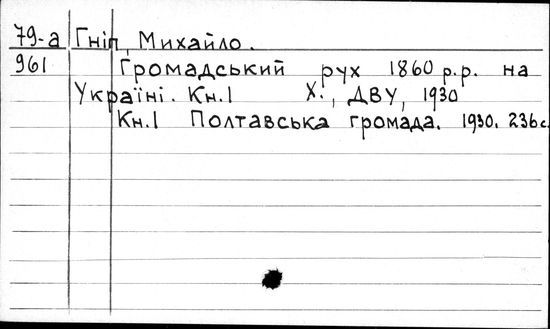 79-а Гніп, Михайло.
961 Громадський рух 1860 р.р. на
Україні. Кн.1 Х., ДВУ, 1930
Кн.1 Полтавська громада. 1930. 236с.